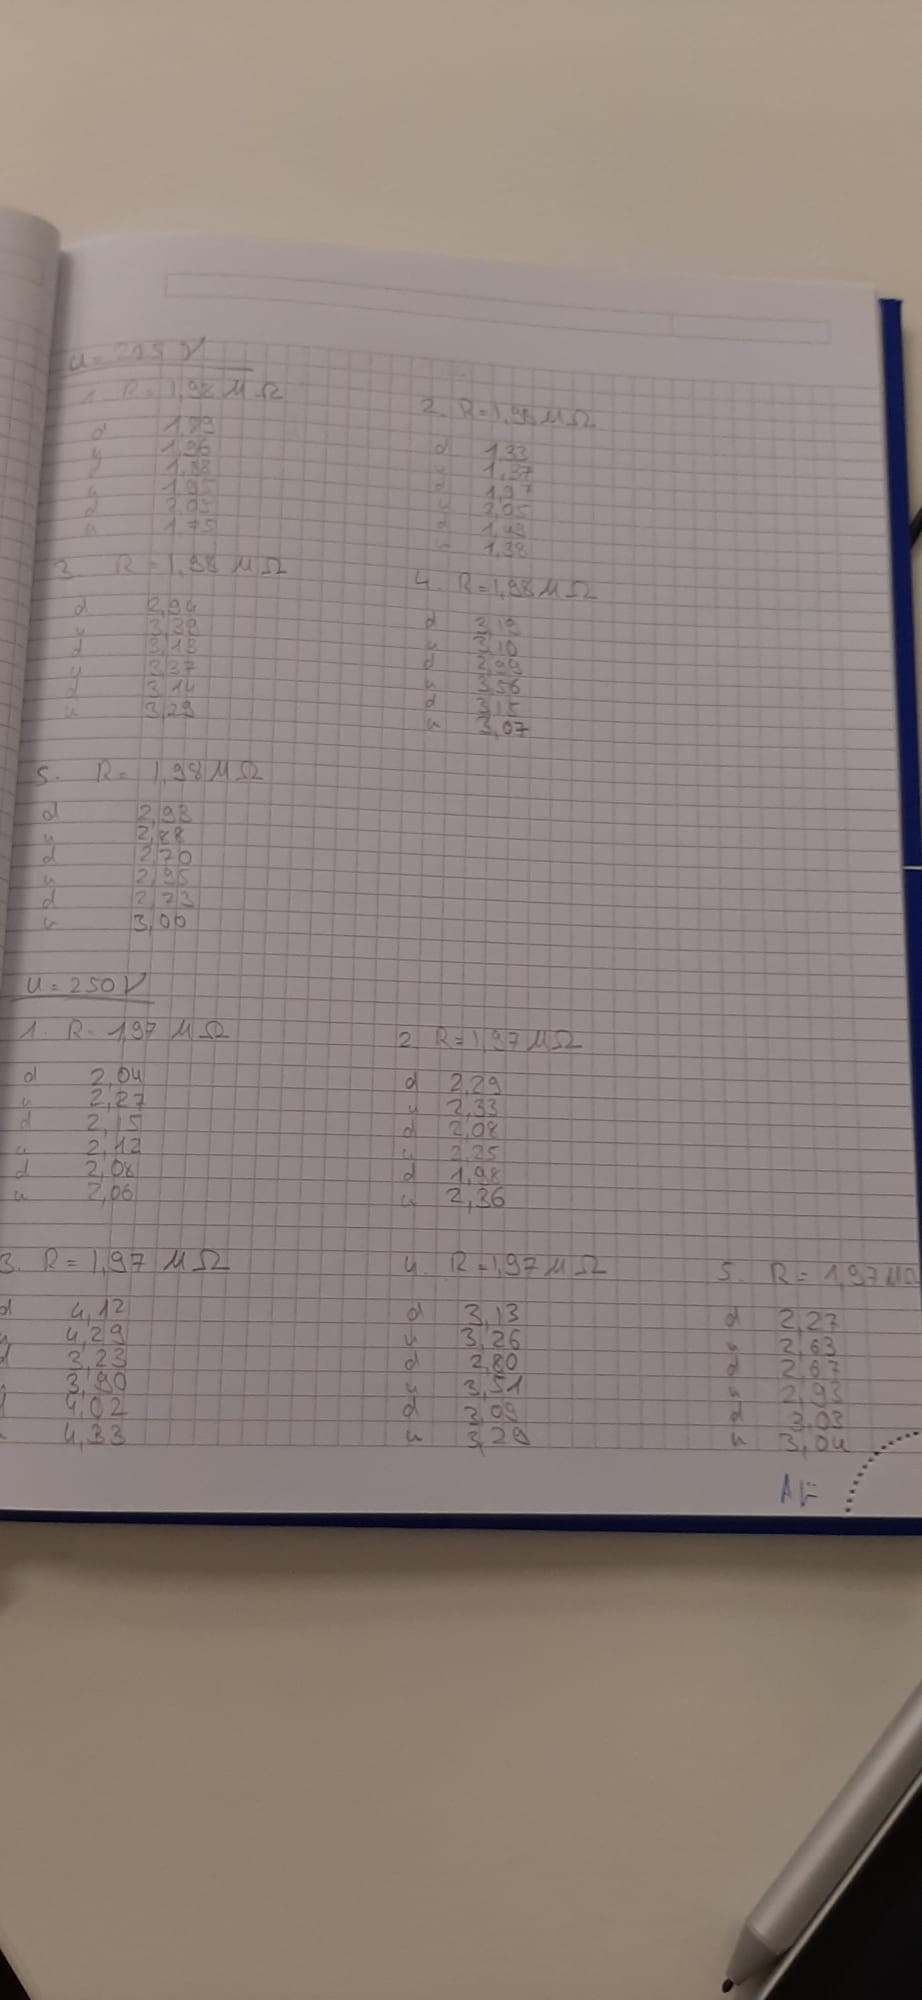 U = 225 V
1. R = 1,98 MΩ
d 1,89
u 1,96
d 1,88
u 1,95
d 2,05
u 1,75
2. R = 1,98 MΩ
d 1,33
u 1,37
d 1,97
u 2,05
d 1,49
u 1,38
3. R = 1,98 MΩ
d 2,94
u 3,39
d 3,13
u 3,37
d 3,14
u 3,29
4. R = 1,98 MΩ
d 3,19
u 3,10
d 2,99
u 3,56
d 3,15
u 3,07
5. R = 1,98 MΩ
d 2,93
u 2,88
d 2,70
u 2,95
d 2,73
u 3,00
U = 250 V
1. R = 1,97 MΩ
d 2,04
u 2,27
d 2,15
u 2,12
d 2,08
u 2,06
2. R = 1,97 MΩ
d 2,29
u 2,33
d 2,08
u 2,25
d 1,98
u 2,36
3. R = 1,97 MΩ
d 4,12
u 4,29
d 3,23
u 3,90
d 4,02
u 4,33
4. R = 1,97 MΩ
d 3,13
u 3,26
d 2,80
u 3,51
d 3,09
u 3,29
5. R = 1,97 MΩ
d 2,27
u 2,63
d 2,67
u 2,93
d 3,03
u 3,04